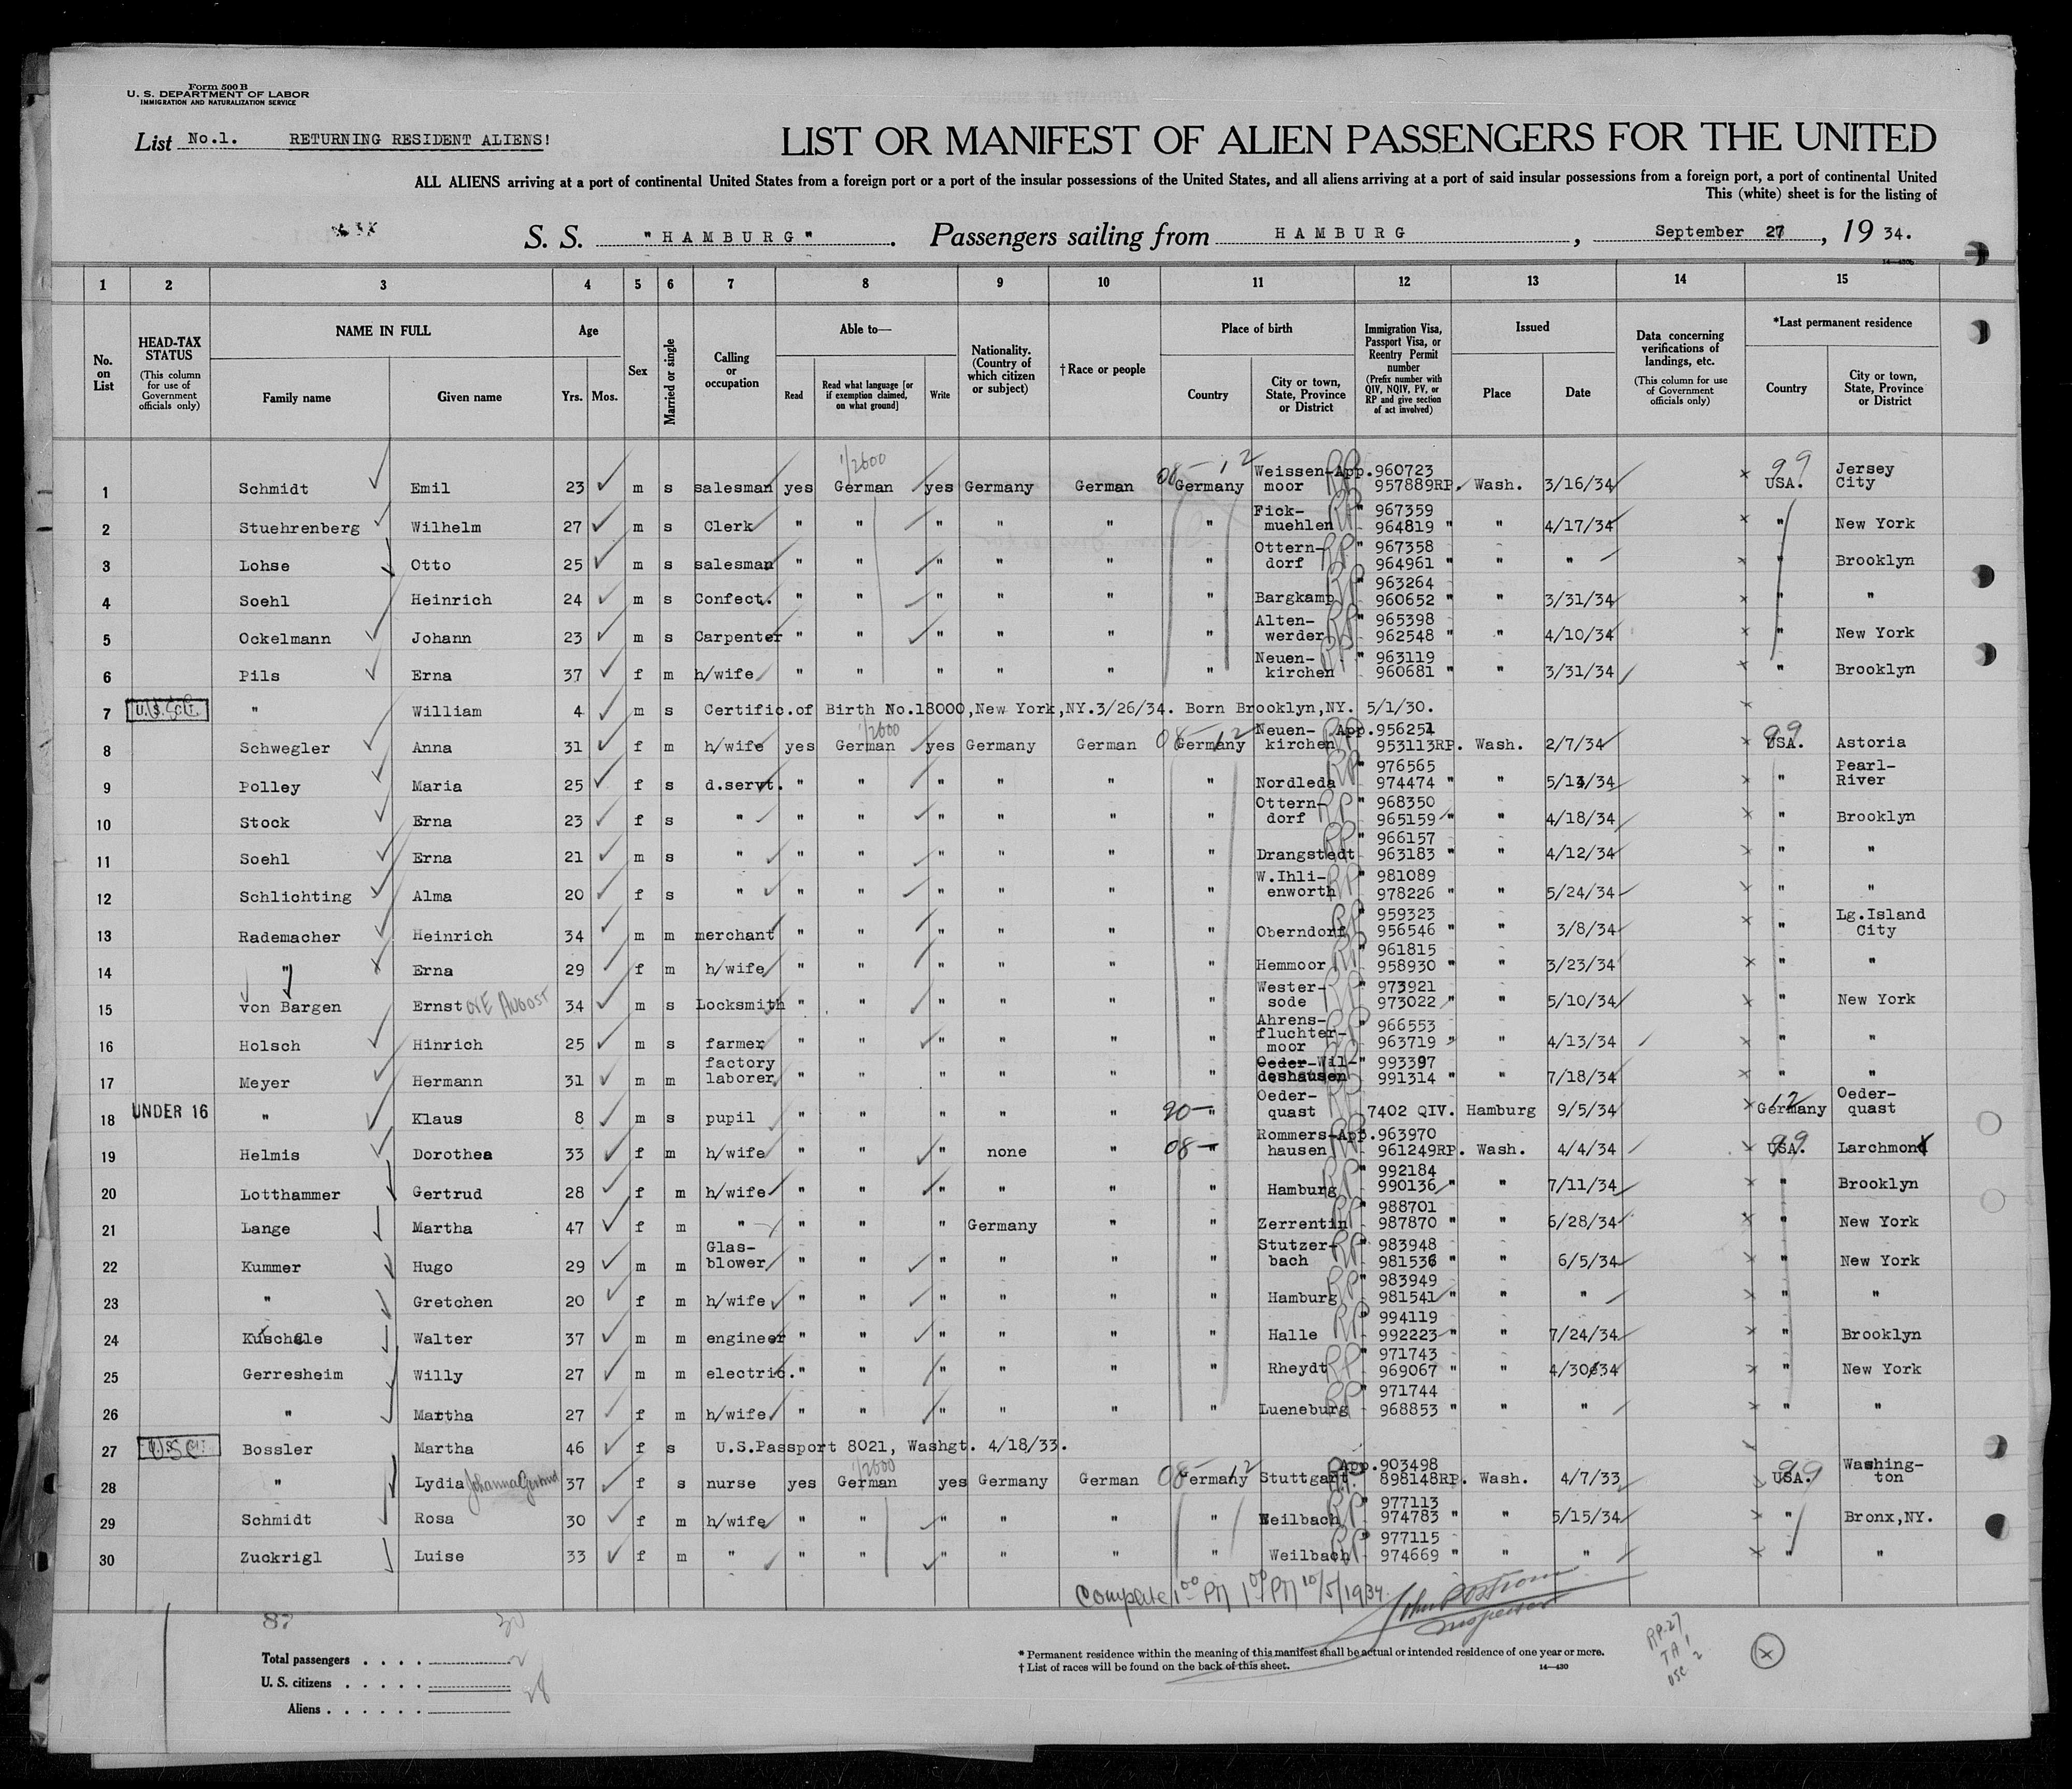 Form 500 B
U. S. DEPARTMENT OF LABOR
IMMIGRATION AND NATURALIZATION SERVICE
List No.1. RETURNING RESIDENT ALIENS!
LIST OR MANIFEST OF ALIEN PASSENGERS FOR THE UNITED
ALL ALIENS arriving at a port of continental United States from a foreign port or a port of the insular possessions of the United States, and all aliens arriving at a port of said insular possessions from a foreign port, a port of continental United
This (white) sheet is for the listing of
S. S. "HAMBURG". Passengers sailing from HAMBURG, September 27, 19 34.
1 2 3 4 5 6 7 8 9 10 11 12 13 14 15
No. on List
HEAD-TAX STATUS (This column for use of Government officials only)
NAME IN FULL Family name Given name
Age Yrs. Mos.
Sex
Married or single
Calling or occupation
Able to— Read Read what language [or if exemption claimed, on what ground] Write
Nationality. (Country of which citizen or subject)
† Race or people
Place of birth Country City or town, State, Province or District
Immigration Visa, Passport Visa, or Reentry Permit number (Prefix number with QIV, NQIV, PV, or RP and give section of act involved)
Issued Place Date
Data concerning verifications of landings, etc. (This column for use of Government officials only)
*Last permanent residence Country City or town, State, Province or District
1 Schmidt Emil 23 m s salesman yes German yes Germany German Germany Weissen-moor App.960723 957889RP. Wash. 3/16/34 USA. Jersey City
2 Stuehrenberg Wilhelm 27 m s Clerk " " " " " " Fick-muehlen " 967359 964819 " " 4/17/34 " New York
3 Lohse Otto 25 m s salesman " " " " " " Ottern-dorf " 967358 964961 " " " " Brooklyn
4 Soehl Heinrich 24 m s Confect. " " " " " " Bargkamp " 963264 960652 " " 3/31/34 " "
5 Ockelmann Johann 23 m s Carpenter " " " " " " Alten-werder " 965398 962548 " " 4/10/34 " New York
6 Pils Erna 37 f m h/wife " " " " " " Neuen-kirchen " 963119 960681 " " 3/31/34 " Brooklyn
7 U.S. CIT. " William 4 m s Certific.of Birth No.18000,New York,NY.3/26/34. Born Brooklyn,NY. 5/1/30.
8 Schwegler Anna 31 f m h/wife yes German yes Germany German Germany Neuen-kirchen App.956251 953113RP. Wash. 2/7/34 USA. Astoria
9 Polley Maria 25 f s d.servt. " " " " " " Nordleda " 976565 974474 " " 5/14/34 " Pearl-River
10 Stock Erna 23 f s " " " " " " " Ottern-dorf " 968350 965159 " " 4/18/34 " Brooklyn
11 Soehl Erna 21 m s " " " " " " " Drangstedt " 966157 963183 " " 4/12/34 " "
12 Schlichting Alma 20 f s " " " " " " " W.Ihli-enworth " 981089 978226 " " 5/24/34 " "
13 Rademacher Heinrich 34 m m merchant " " " " " " Oberndorf " 959323 956546 " " 3/8/34 " Lg.Island City
14 " Erna 29 f m h/wife " " " " " " Hemmoor " 961815 958930 " " 3/23/34 " "
15 von Bargen Ernst AUGUST 34 m s Locksmith " " " " " " Wester-sode " 973921 973022 " " 5/10/34 " New York
16 Holsch Hinrich 25 m s farmer " " " " " " Ahrens-fluchter-moor " 966553 963719 " " 4/13/34 " "
17 Meyer Hermann 31 m m factory laborer " " " " " " Oeder-Wil-deshausen " 993397 991314 " " 7/18/34 " "
18 UNDER 16 " Klaus 8 m s pupil " " " " " " Oeder-quast 7402 QIV. Hamburg 9/5/34 Germany Oeder-quast
19 Helmis Dorothea 33 f m h/wife " " " none " " Rommers-hausen App.963970 961249RP. Wash. 4/4/34 USA. Larchmont
20 Lotthammer Gertrud 28 f m h/wife " " " " " " Hamburg " 992184 990136 " " 7/11/34 " Brooklyn
21 Lange Martha 47 f m " " " " Germany " " Zerrentin " 988701 987870 " " 6/28/34 " New York
22 Kummer Hugo 29 m m Glas-blower " " " " " " Stutzer-bach " 983948 981536 " " 6/5/34 " New York
23 " Gretchen 20 f m h/wife " " " " " " Hamburg " 983949 981541 " " " " "
24 Kuschele Walter 37 m m engineer " " " " " " Halle " 994119 992223 " " 7/24/34 " Brooklyn
25 Gerresheim Willy 27 m m electric. " " " " " " Rheydt " 971743 969067 " " 4/30/34 " New York
26 " Martha 27 f m h/wife " " " " " " Lueneburg " 971744 968853 " " " " "
27 USC Bossler Martha 46 f s U.S.Passport 8021, Washgt. 4/18/33.
28 " Lydia Johanna Gertrud 37 f s nurse yes German yes Germany German Germany Stuttgart App.903498 898148RP. Wash. 4/7/33 USA. Washing-ton
29 Schmidt Rosa 30 f m h/wife " " " " " " Weilbach " 977113 974783 " " 5/15/34 " Bronx,NY.
30 Zuckrigl Luise 33 f m " " " " " " " Weilbach " 977115 974669 " " " " "
Complete 1 00 PM 1 00 PM 10/5/1934
Inspector
87 30
Total passengers . . . . 2
U. S. citizens . . . . . 28
Aliens . . . . . .
* Permanent residence within the meaning of this manifest shall be actual or intended residence of one year or more.
† List of races will be found on the back of this sheet.
14—430
RP-27
TA 1
USC 2